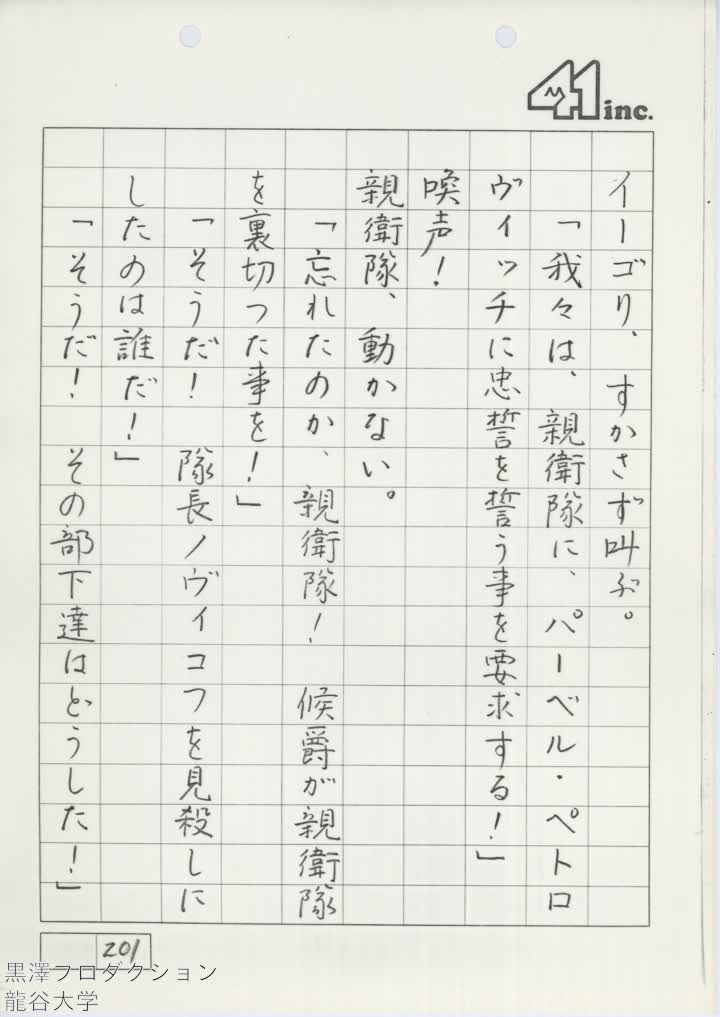 41 inc.
イーゴリ、すかさず叫ぶ。
「我々は、親衛隊に、パーベル・ペトロ
ヴィッチに忠誓を誓う事を要求する!」
喚声!
親衛隊、動かない。
「忘れたのか、親衛隊! 候爵が親衛隊
を裏切った事を!」
「そうだ! 隊長ノヴィコフを見殺しに
したのは誰だ!」
「そうだ! その部下達はどうした!」
201
黒澤プロダクション
龍谷大学